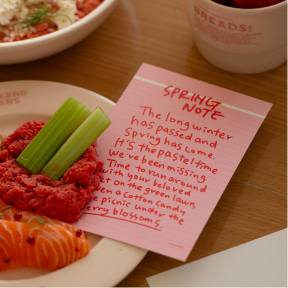 BREADS!
SPRING
NOTE
The long winter
has passed and
Spring has come.
It's the pastel time
We've been missing.
Time to run around
with your beloved
on the green lawn,
a cotton candy
picnic under the
blossoms.